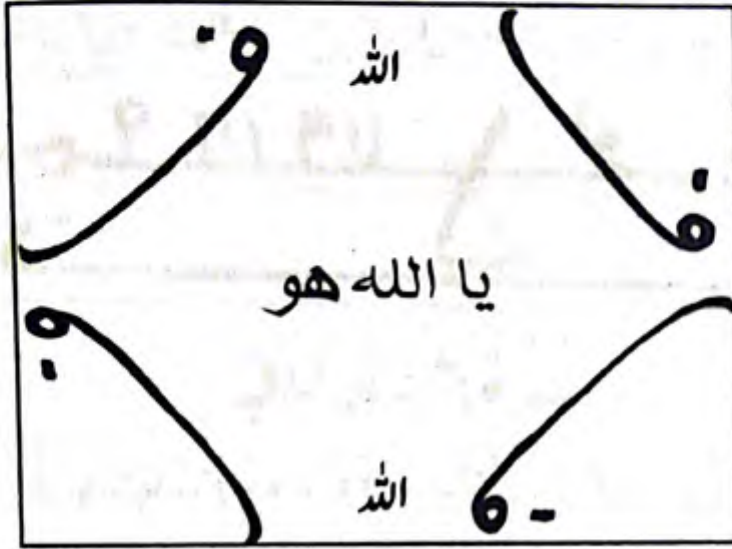 الله
يا الله هو
الله